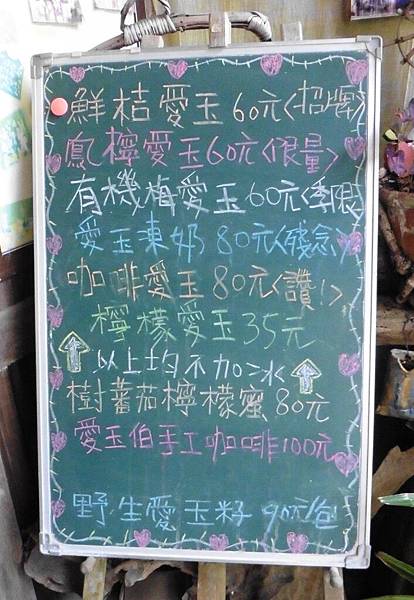 鮮桔愛玉60元<招牌>
鳳檸愛玉60元<限量>
有機梅愛玉60元<季限>
愛玉凍奶80元<殘念>
咖啡愛玉80元<讚!>
檸檬愛玉35元
以上均不加冰
樹蕃茄檸檬蜜80元
愛玉伯手工咖啡100元
野生愛玉籽90元/包